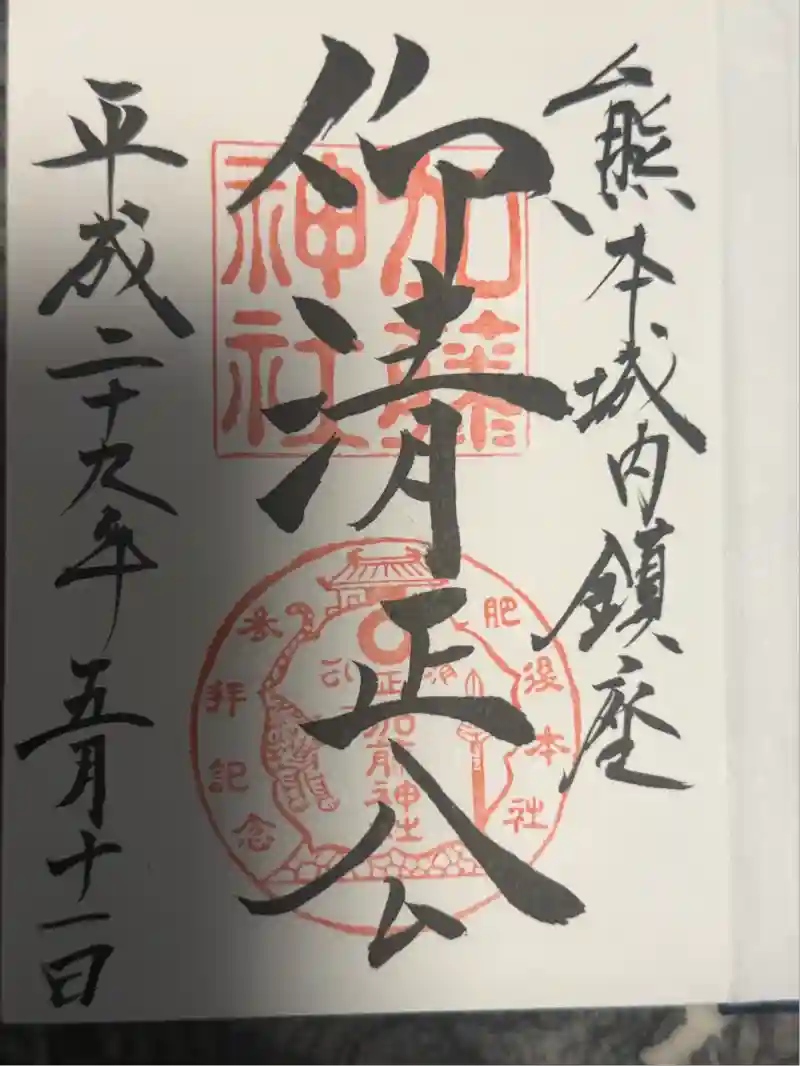 熊本城内鎮座
仰清正公
平成二十九年五月十一日
加藤神社
肥後本社
参拝記念
正一位
加藤神社